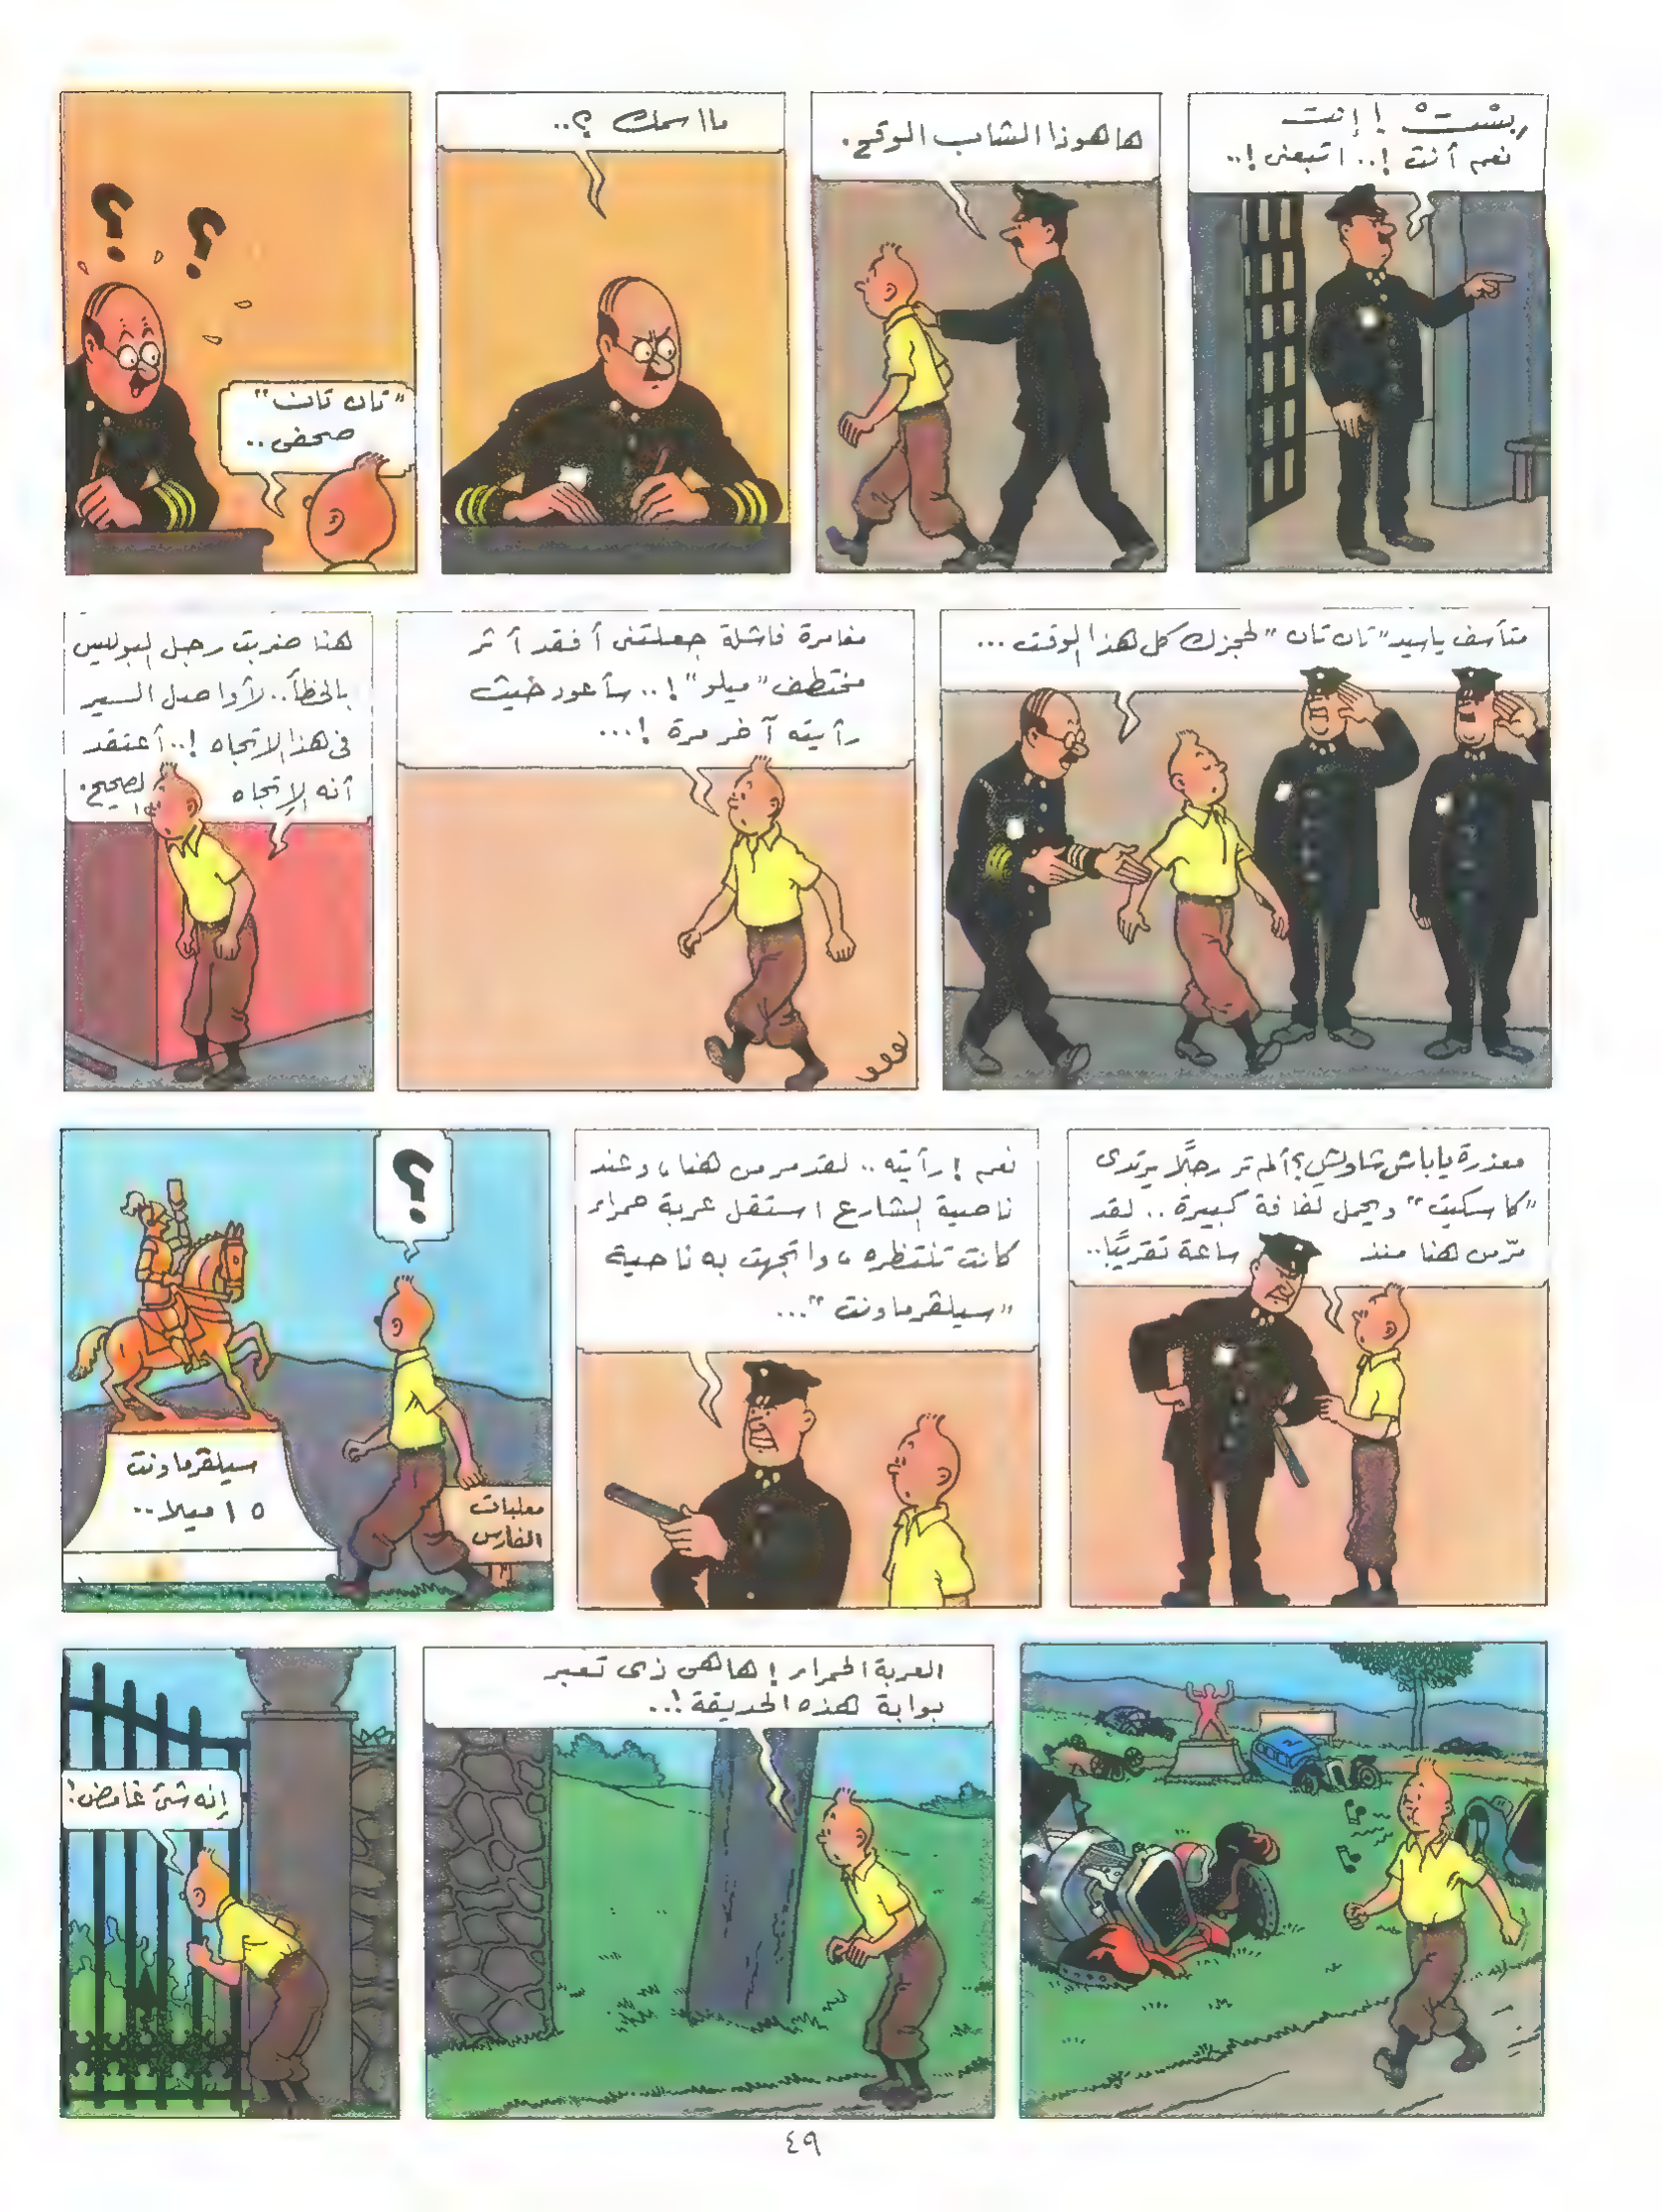 بِسْتْ ! إنت
نعم أنت !.. اتبعنى !..
هاهوذا الشاب الوقح.
ما اسمك ؟..
"تان تان"
صحفى..
متأسف ياسيد "تان تان" لحجزك كل هذا الوقت ...
مغامرة فاشلة جعلتنى أفقد أثر
مختطف "ميلو" !.. سأعود حيث
رأيته آخر مرة !...
هنا ضربت رجل البوليس
بالخطأ.. لأواصل السير
فى هذا الاتجاه !.. أعتقد
أنه الإتجاه الصحيح.
معذرة ياباش شاويش ؟ ألم تر رجلًا يرتدى
"كاسكيت" ويحمل لفافة كبيرة .. لقد
مرّ من هنا منذ ساعة تقريبًا..
نعم ! رأيته .. لقد مر من هنا ، وعند
ناصية الشارع استقل عربة حمراء
كانت تنتظره ، واتجهت به ناحية
"سيلڤرماونت" ...
؟
سيلڤرماونت
١٥ ميلا..
معلبات
الفارس
العربة الحمراء ! هاهى ذى تعبر
بوابة هذه الحديقة !..
إنه شئ غامض !
٤٩